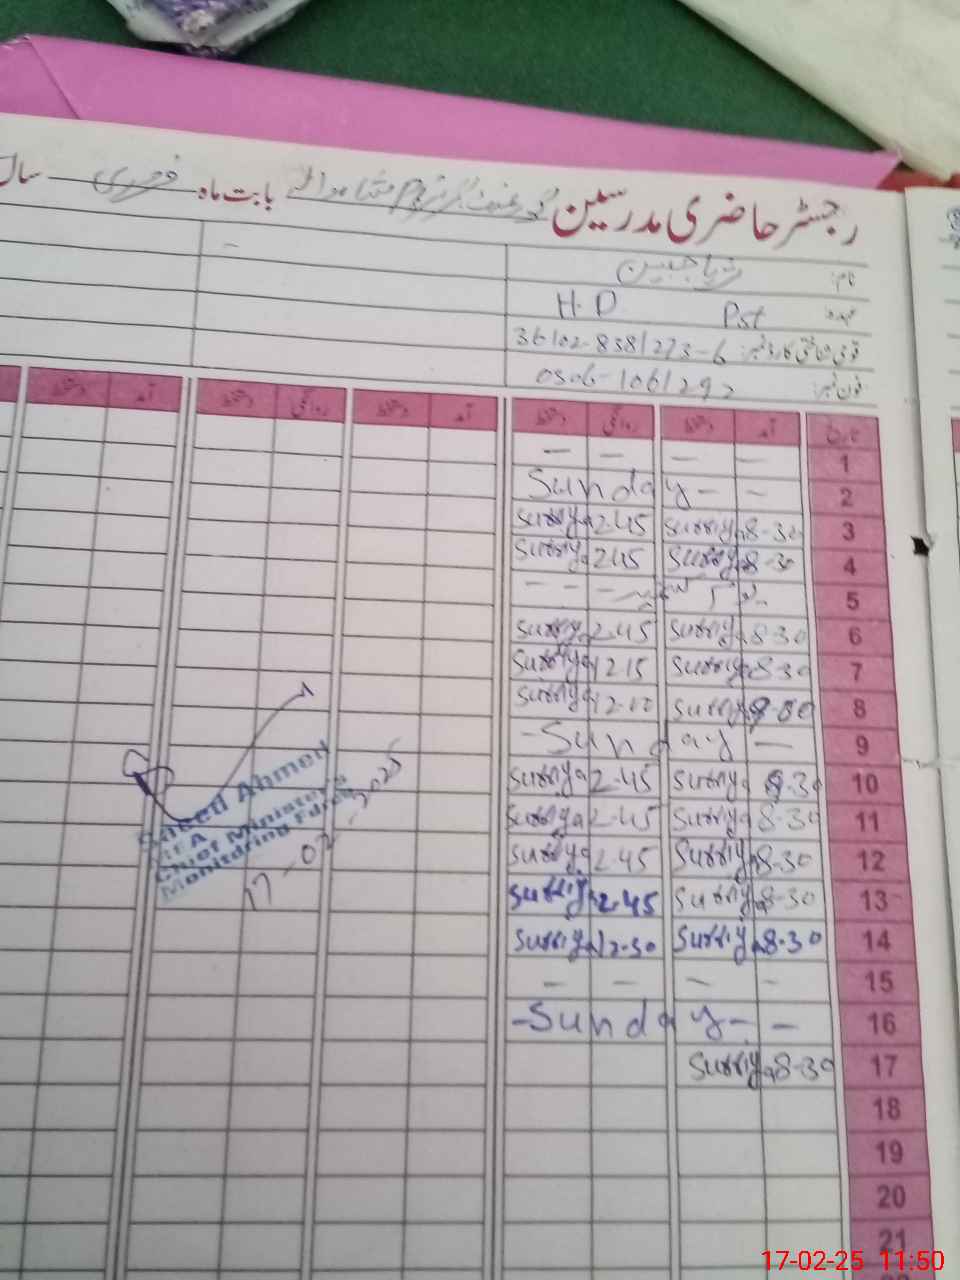 رجسٹر حاضری مدرسین بابت ماہ فروری سال
نام:
عہدہ Pst H.D
قومی شناختی کارڈ نمبر: 36102-8381273-6
فون نمبر: 0306-1061292
تاریخ آمد دستخط روانگی دستخط آمد دستخط روانگی دستخط آمد دستخط
1 — — — —
2 Sunday - -
3 8-30 Surriya 2-45 Surriya
4 8-30 Surriya 245 Surriya
5
6 8-30 Surriya 2-45 Surriya
7 8-30 Surriya 12-15 Surriya
8 Surriya Surriya
9 -Sunday —
10 8-30 Surriya 2-45 Surriya
11 8-30 Surriya 2-45 Surriya
12 8-30 Surriya 2-45 Surriya
13 8-30 Surriya 2-45 Surriya
14 8-30 Surriya 12-30 Surriya
15 — — — —
16 -Sunday- -
17 8-30 Surriya
18
19
20
21
Saeed Ahmed
MEA
Chief Minister's
Monitoring Force
17-02-2025
17-02-25 11:50